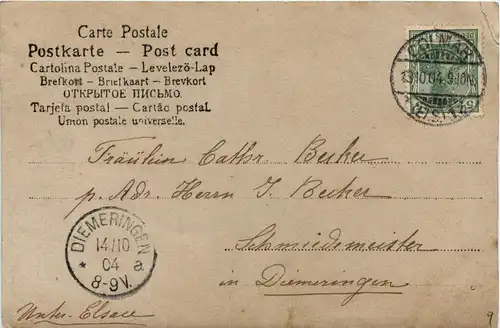 Carte Postale
Postkarte — Post card
Cartolina Postale – Levelező-Lap
Brefkort – Briefkaart – Brevkort
ОТКРЫТОЕ ПИСЬМО.
Tarjeta postal – Cartão postal
Union postale universelle.
COLMAR
13/10 04. 9-10
(ELS.)
Fräulein Cathr. Becker
p. Adr. Herrn J. Becker
Schmiedemeister
in Diemeringen
DIEMERINGEN
14/10
04 a
* 8-9V.
Unter-Elsass
9